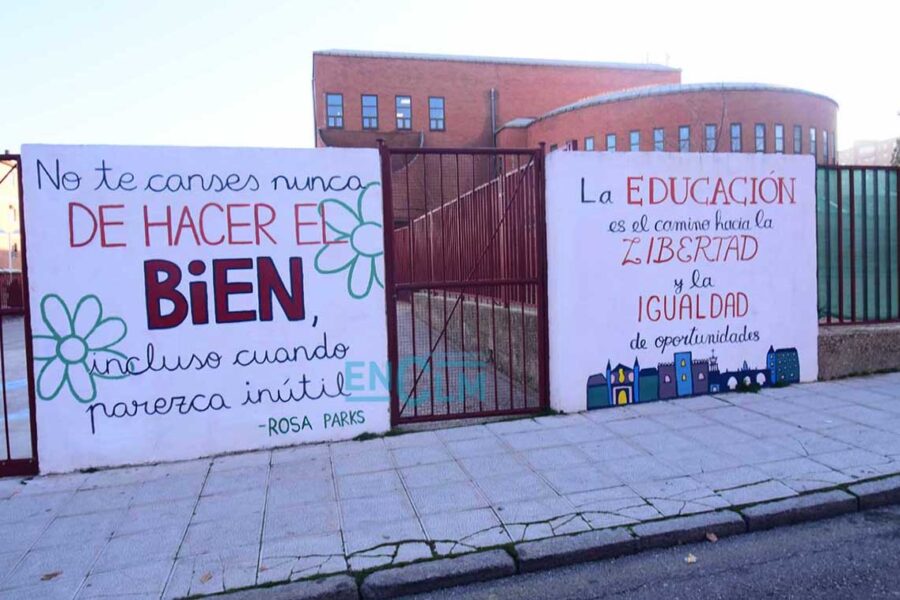 No te canses nunca
DE HACER EL
BiEN,
incluso cuando
parezca inútil
-ROSA PARKS
La EDUCACIÓN
es el camino hacia la
LIBERTAD
y la
IGUALDAD
de oportunidades
ENCLM